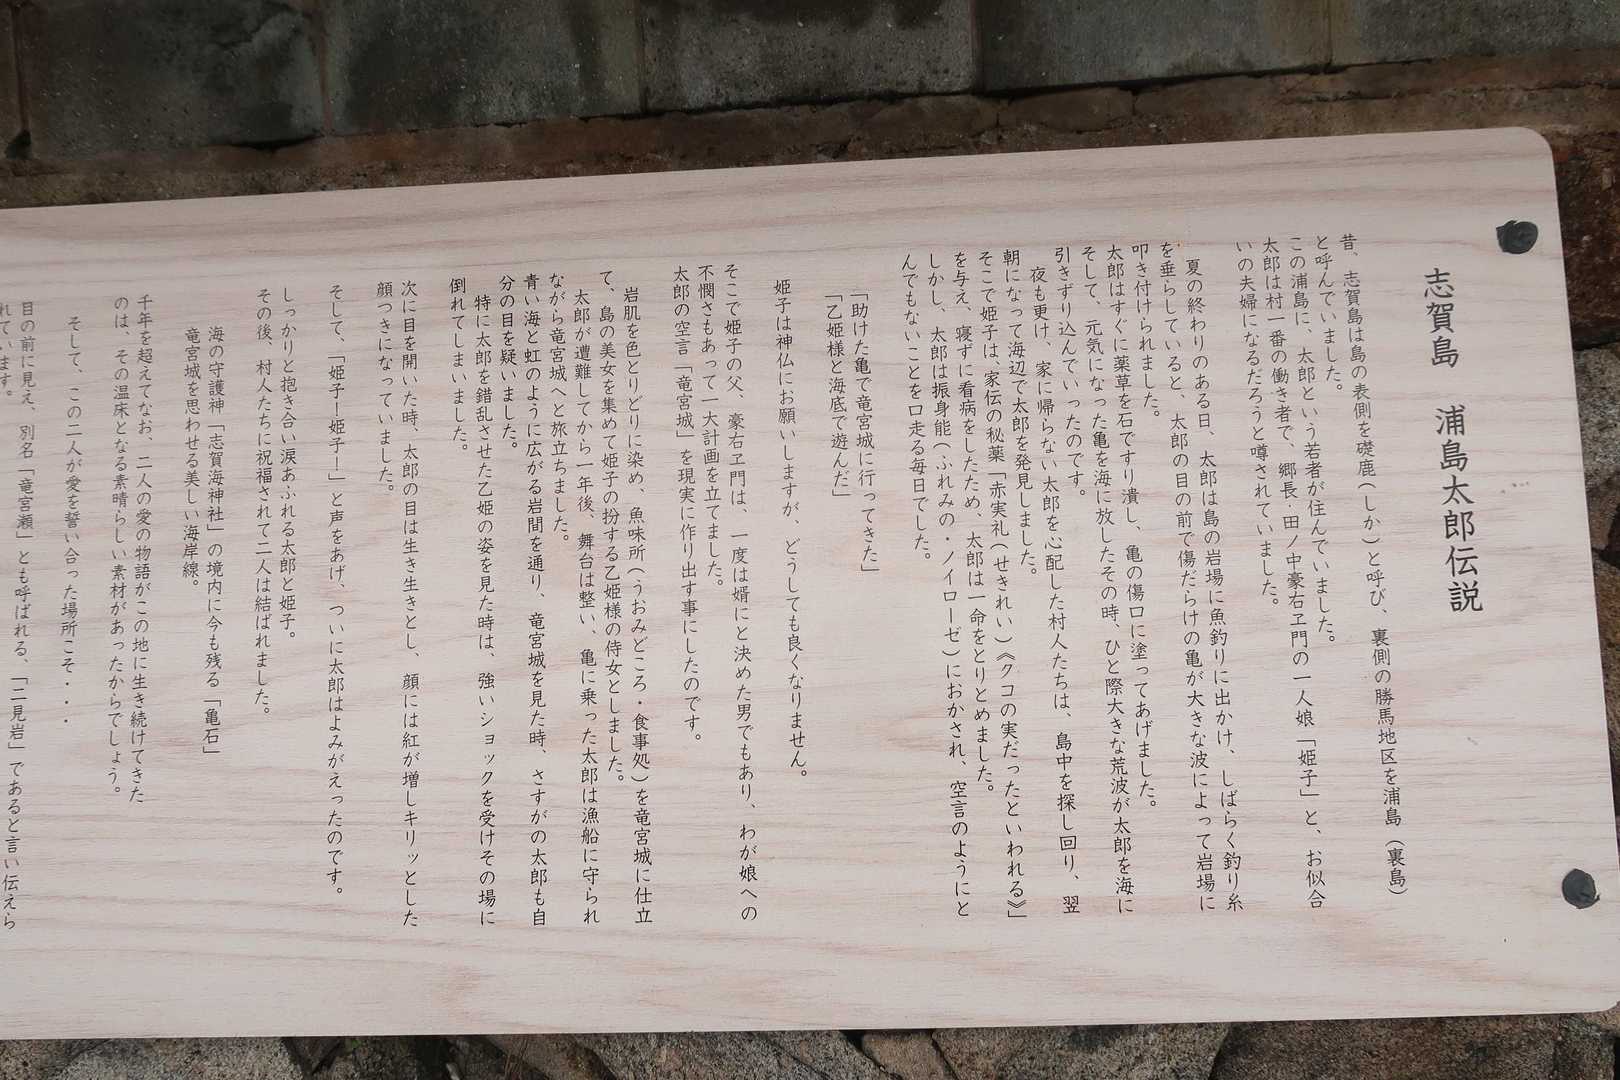 志賀島　浦島太郎伝説
昔、志賀島は島の表側を礎鹿（しか）と呼び、裏側の勝馬地区を浦島（裏島）
と呼んでいました。
この浦島に、太郎という若者が住んでいました。
太郎は村一番の働き者で、郷長・田ノ中豪右ヱ門の一人娘「姫子」と、お似合
いの夫婦になるだろうと噂されていました。
夏の終わりのある日、太郎は島の岩場に魚釣りに出かけ、しばらく釣り糸
を垂らしていると、太郎の目の前で傷だらけの亀が大きな波によって岩場に
叩き付けられました。
太郎はすぐに薬草を石ですり潰し、亀の傷口に塗ってあげました。
そして、元気になった亀を海に放したその時、ひと際大きな荒波が太郎を海に
引きずり込んでいったのです。
夜も更け、家に帰らない太郎を心配した村人たちは、島中を探し回り、翌
朝になって海辺で太郎を発見しました。
そこで姫子は、家伝の秘薬「赤実礼（せきれい）《クコの実だったといわれる》」
を与え、寝ずに看病をしたため、太郎は一命をとりとめました。
しかし、太郎は振身能（ふれみの・ノイローゼ）におかされ、空言のようにと
んでもないことを口走る毎日でした。
「助けた亀で竜宮城に行ってきた」
「乙姫様と海底で遊んだ」
姫子は神仏にお願いしますが、どうしても良くなりません。
そこで姫子の父、豪右ヱ門は、一度は婿にと決めた男でもあり、わが娘への
不憫さもあって一大計画を立てました。
太郎の空言「竜宮城」を現実に作り出す事にしたのです。
岩肌を色とりどりに染め、魚味所（うおみどころ・食事処）を竜宮城に仕立
て、島の美女を集めて姫子の扮する乙姫様の侍女としました。
太郎が遭難してから一年後、舞台は整い、亀に乗った太郎は漁船に守られ
ながら竜宮城へと旅立ちました。
青い海と虹のように広がる岩間を通り、竜宮城を見た時、さすがの太郎も自
分の目を疑いました。
特に太郎を錯乱させた乙姫の姿を見た時は、強いショックを受けその場に
倒れてしまいました。
次に目を開いた時、太郎の目は生き生きとし、顔には紅が増しキリッとした
顔つきになっていました。
そして、「姫子！姫子！」と声をあげ、ついに太郎はよみがえったのです。
しっかりと抱き合い涙あふれる太郎と姫子。
その後、村人たちに祝福されて二人は結ばれました。
海の守護神「志賀海神社」の境内に今も残る「亀石」
竜宮城を思わせる美しい海岸線。
千年を超えてなお、二人の愛の物語がこの地に生き続けてきた
のは、その温床となる素晴らしい素材があったからでしょう。
そして、この二人が愛を誓い合った場所こそ・・・
目の前に見え、別名「竜宮瀬」とも呼ばれる、「二見岩」であると言い伝えら
れています。